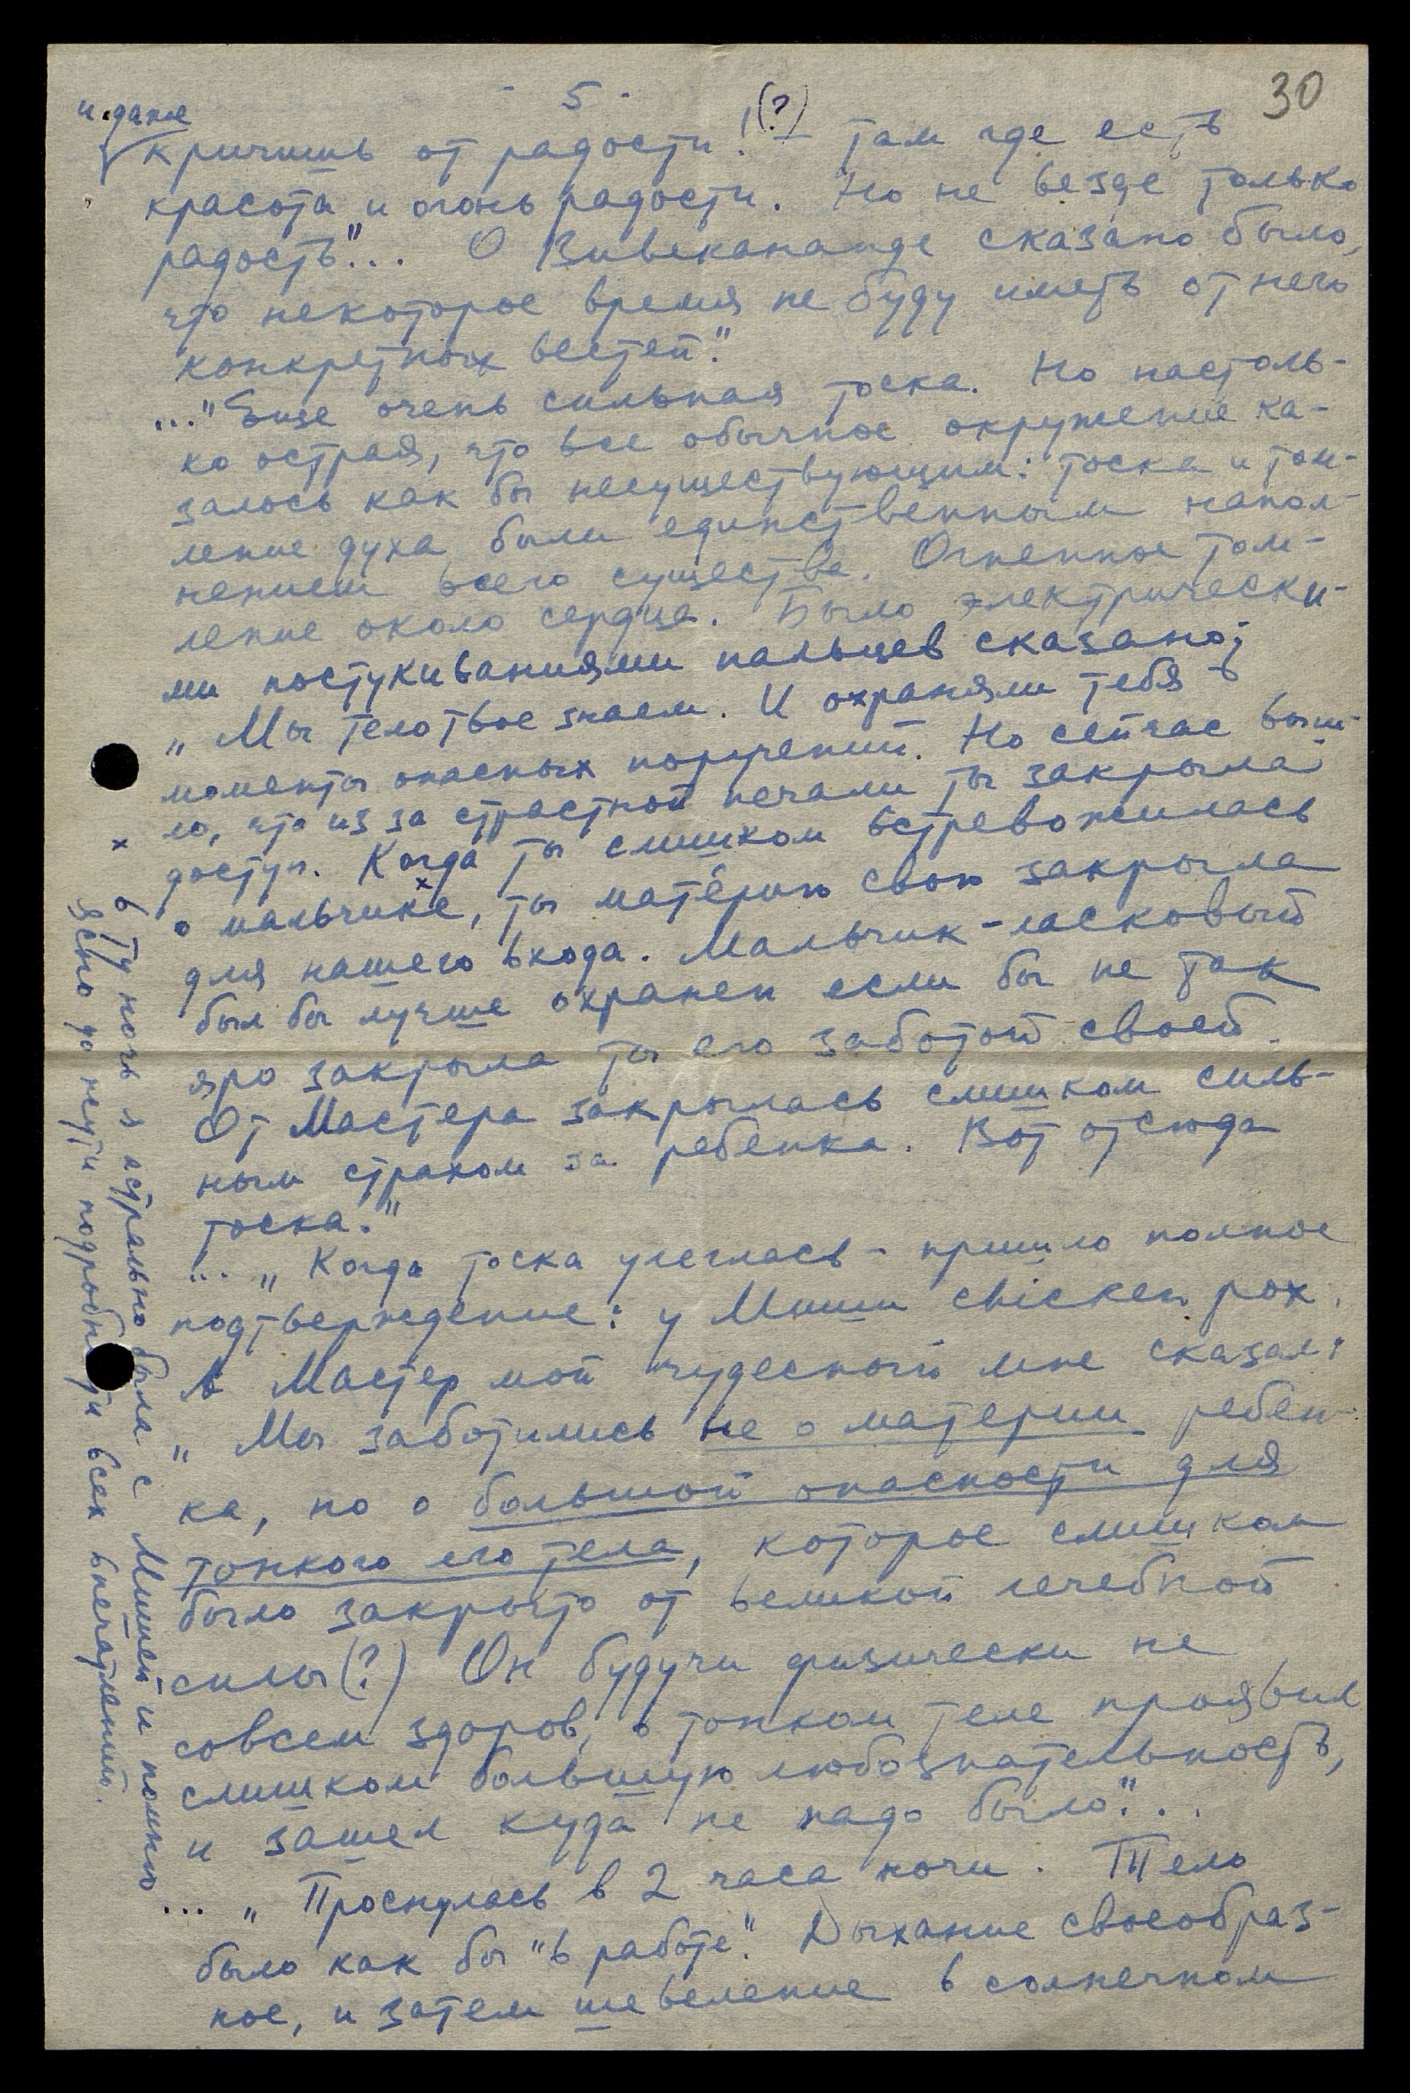 - 5 -
30
и даже
кричишь от радости! (?) – там где есть
красота и огонь радости. Но не везде только
радость"... О Вивекананде сказано было,
что некоторое время не буду иметь от него
конкретных вестей."
..."Еще очень сильная тоска. Но настоль-
ко острая, что все обычное окружение ка-
залось как бы несуществующим: тоска и том-
ление духа были единственным напол-
нением всего существа. Огненное том-
ление около сердца. Было электрически-
ми постукиваниями пальцев сказано:
„Мы тело твое знаем. И охраняли тебя в
моменты опасных поручений. Но сейчас выш-
ло, что из за страстной печали ты закрыла
доступ. Когда ты слишком встревожилась
о мальчике x, ты материю свою закрыла
для нашего входа. Мальчик-ласковый
был бы лучше охранен если бы не так
яро закрыла ты его заботой своей.
От Мастера закрылась слишком силь-
ным страхом за ребенка. Вот отсюда
тоска."
... „Когда тоска улеглась – пришло полное
подтверждение: у Миши chicken pox.
А Мастер мой чудесный мне сказал:
„Мы заботились не о материи ребен-
ка, но о большой опасности для
тонкого его тела, которое слишком
было закрыто от великой лечебной
силы (?) Он будучи физически не
совсем здоров, в тонком теле проявил
слишком большую любознательность,
и зашел куда не надо было"...
... „Проснулась в 2 часа ночи. Тело
было как бы "в работе". Дыхание своеобраз-
ное, и затем шевеление в солнечном
x в ту ночь я астрально была с Мишей и помню
ясно до жути подробности всех впечатлений.